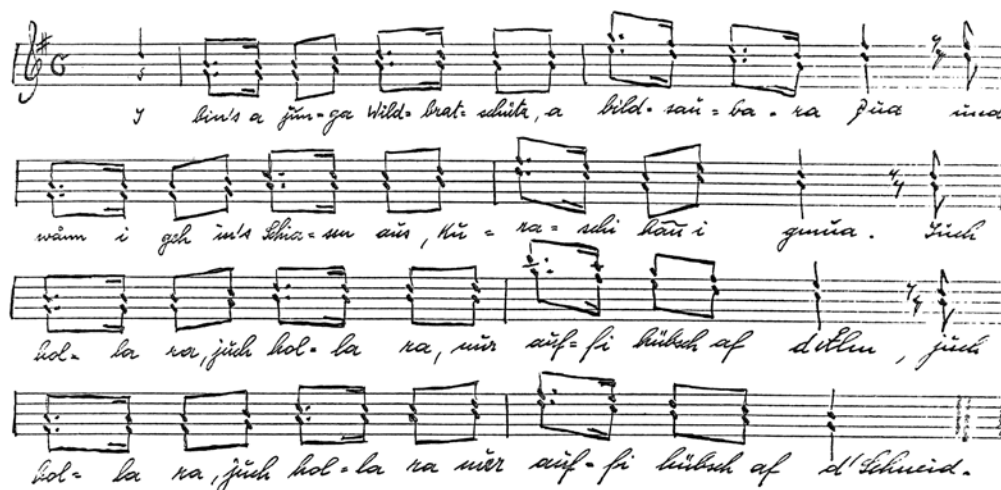 I bin's a jun-ga Wild-brat-schütz, a bild-sau-ba-ra Bua und
wånn i geh in's Schia-ssn aus, Ku-ra-schi håu i gmua. Juch
hol-la ra, juch hol-la ra, nur auf-fi hübsch af d'Ålm, juch
hol-la ra, juch hol-la ra nur auf-fi hübsch af d'Schneid.